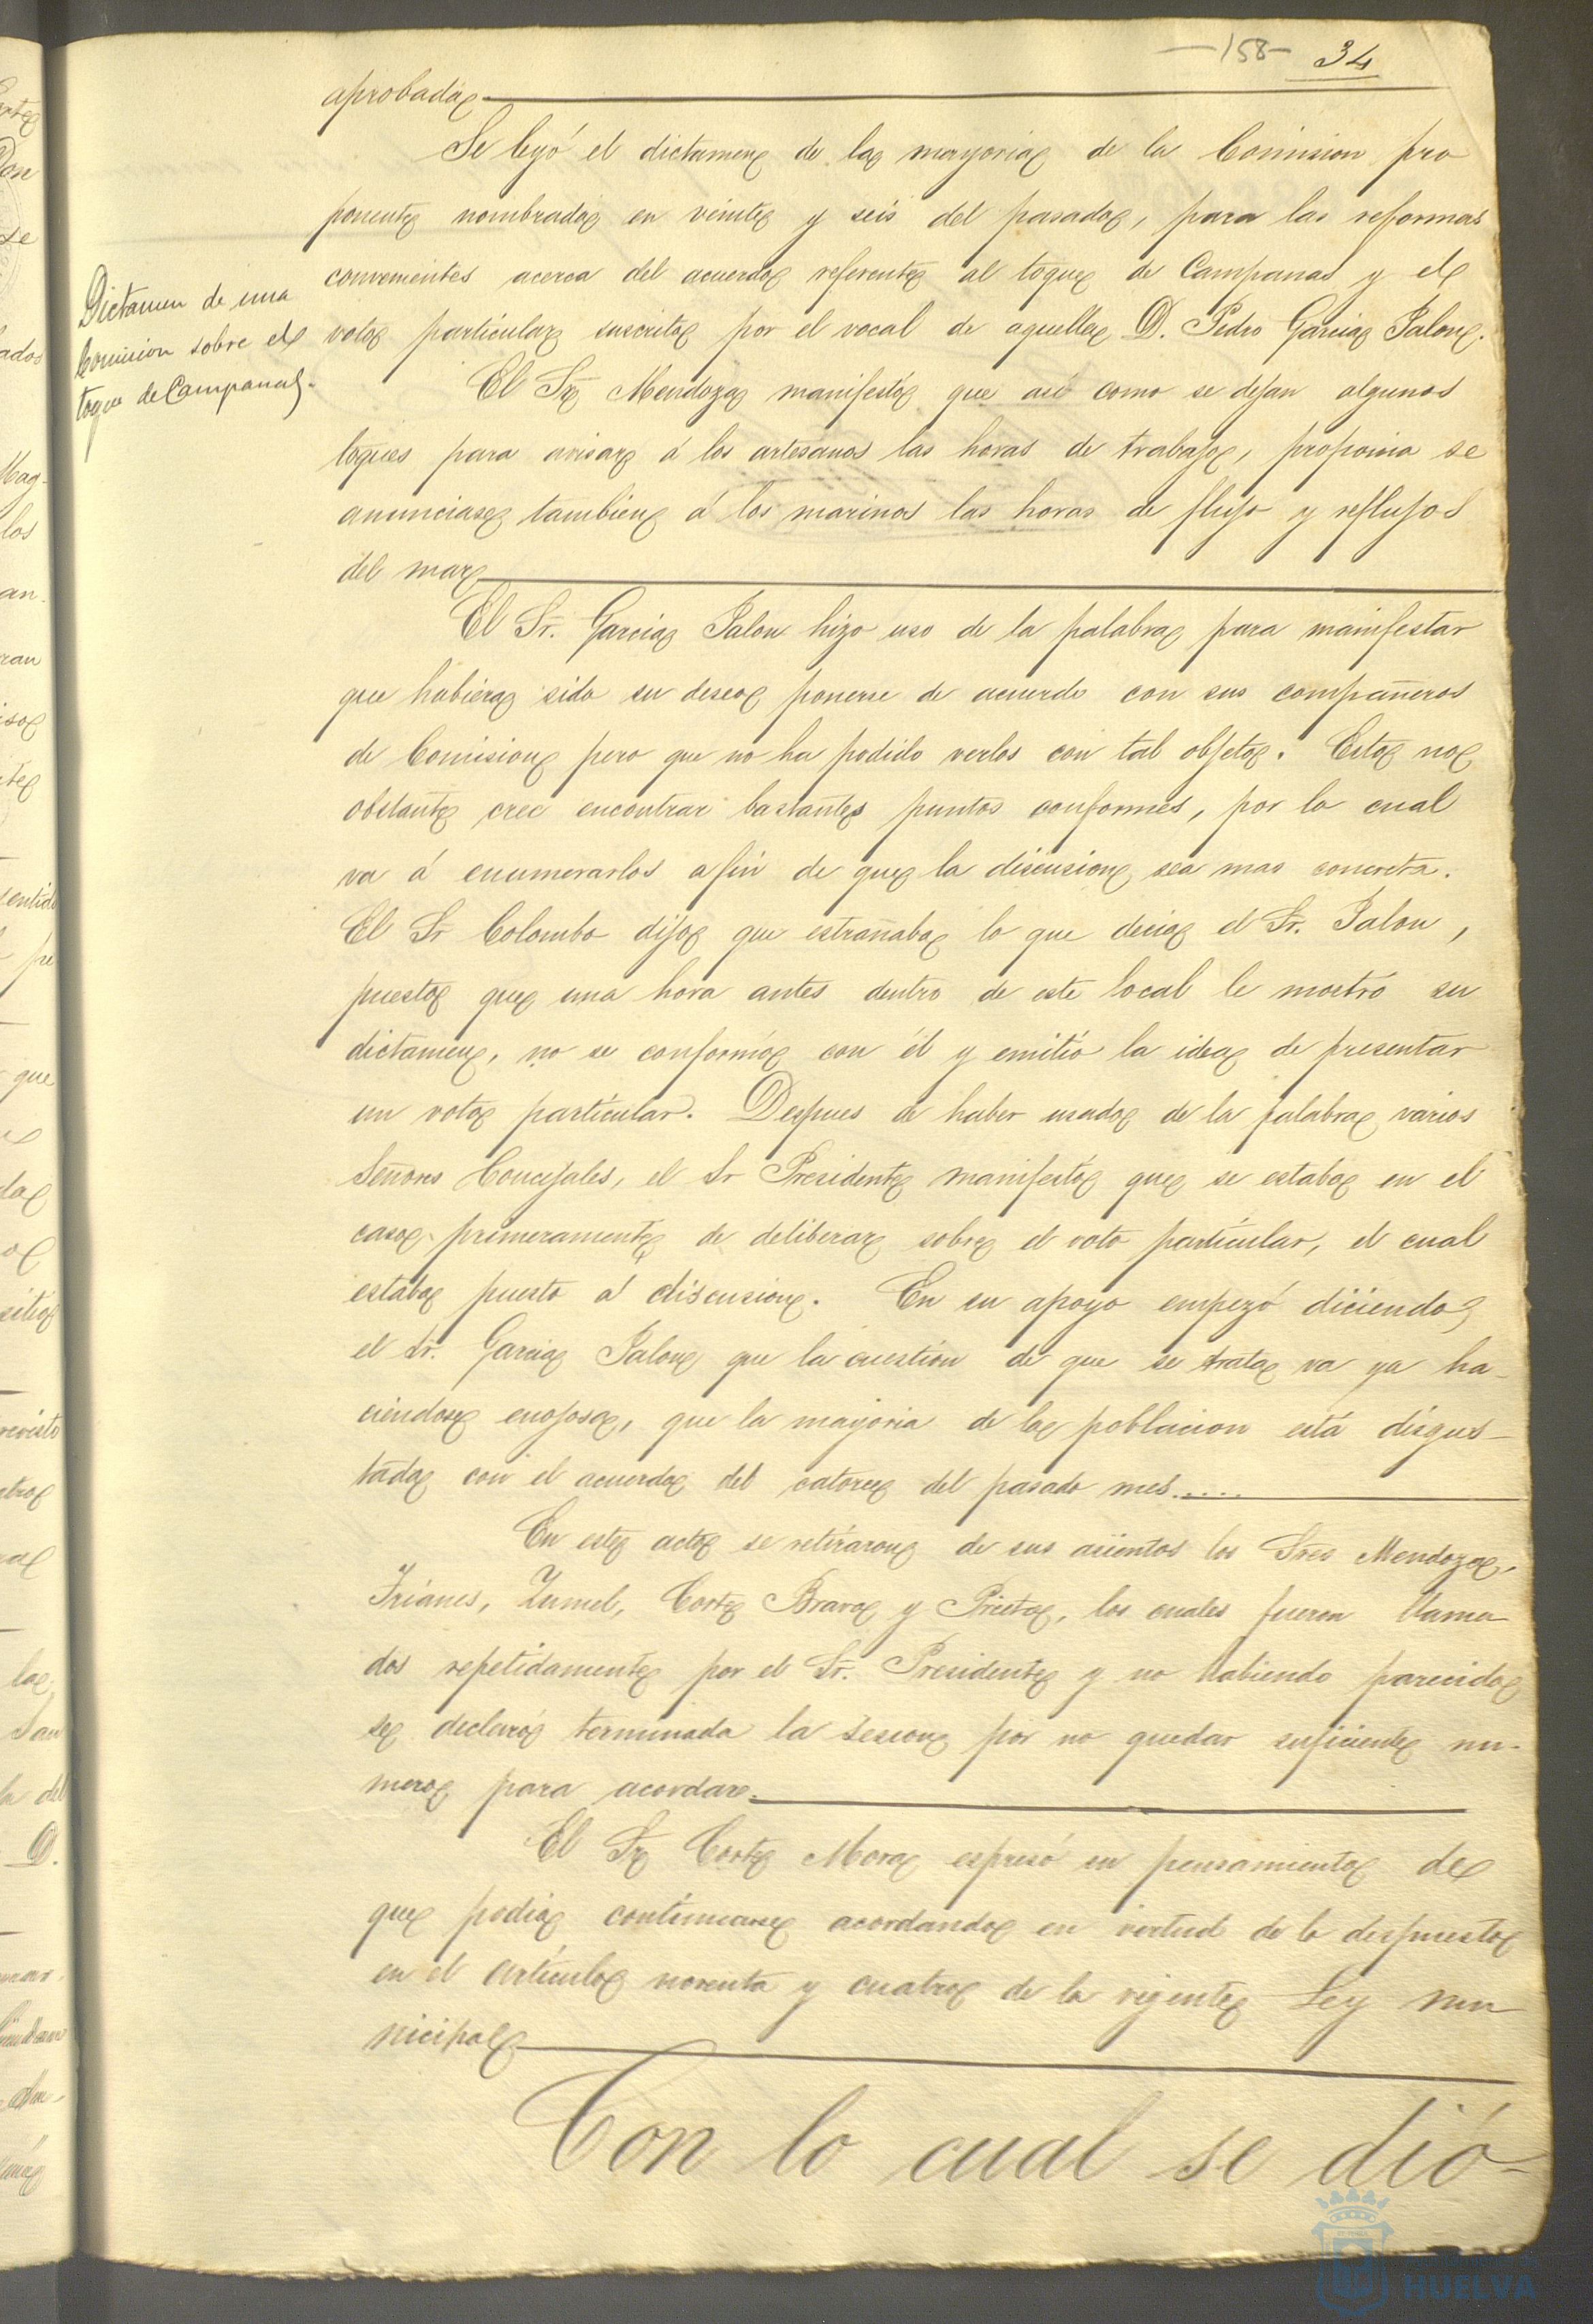 -158- 34
aprobada
Se leyó el dictamen de la mayoria de la Comision pro
ponente nombrada en veinte y seis del pasado, para las reformas
convenientes acerca del acuerdo referente al toque de Campanas y el
voto particular suscrito por el vocal de aquella D. Pedro Garcia Jalon.
Dictamen de una
Comision sobre el
toque de Campanas.
El Sr Mendoza manifestó que asi como se dejan algunos
toques para avisar á los artesanos las horas de trabajo, proponia se
anunciase tambien á los marinos las horas de flujo y reflujos
del mar
El Sr. Garcia Jalon hizo uso de la palabra para manifestar
que hubiera sido su deseo ponerse de acuerdo con sus compañeros
de Comision pero que no ha podido verlos con tal objeto. Esto no
obstante cree encontrar bastantes puntos conformes, por lo cual
va á enumerarlos afin de que la discusion sea mas concreta.
El Sr Colombo dijo que estrañaba lo que decia el Sr. Jalon,
puesto que una hora antes dentro de este local le mostró su
dictamen, no se conformó con él y emitió la idea de presentar
un voto particular. Despues de haber usado de la palabra varios
Señores Concejales, el Sr Presidente manifestó que se estaba en el
caso primeramente de deliberar sobre el voto particular, el cual
estaba puesto á discusion. En su apoyo empezó diciendo
el Sr. Garcia Jalon que la cuestion de que se trata va ya ha-
ciendose enojosa, que la mayoria de la poblacion está disgus-
tada con el acuerdo del catorce del pasado mes.....
En este acto se retiraron de sus asientos los Sres Mendoza,
Trianes, Zumel, Corte Bravo y Prieto, los cuales fueron llama
dos repetidamente por el Sr. Presidente y no habiendo parecido
se declaró terminada la sesion por no quedar suficiente nu-
mero para acordar.
El Sr Corte Mora espresó su pensamiento de
que podia continuarse acordando en virtud de lo dispuesto
en el artículo noventa y cuatro de la vigente Ley mu
nicipal
Con lo cual se dió
HUELVA